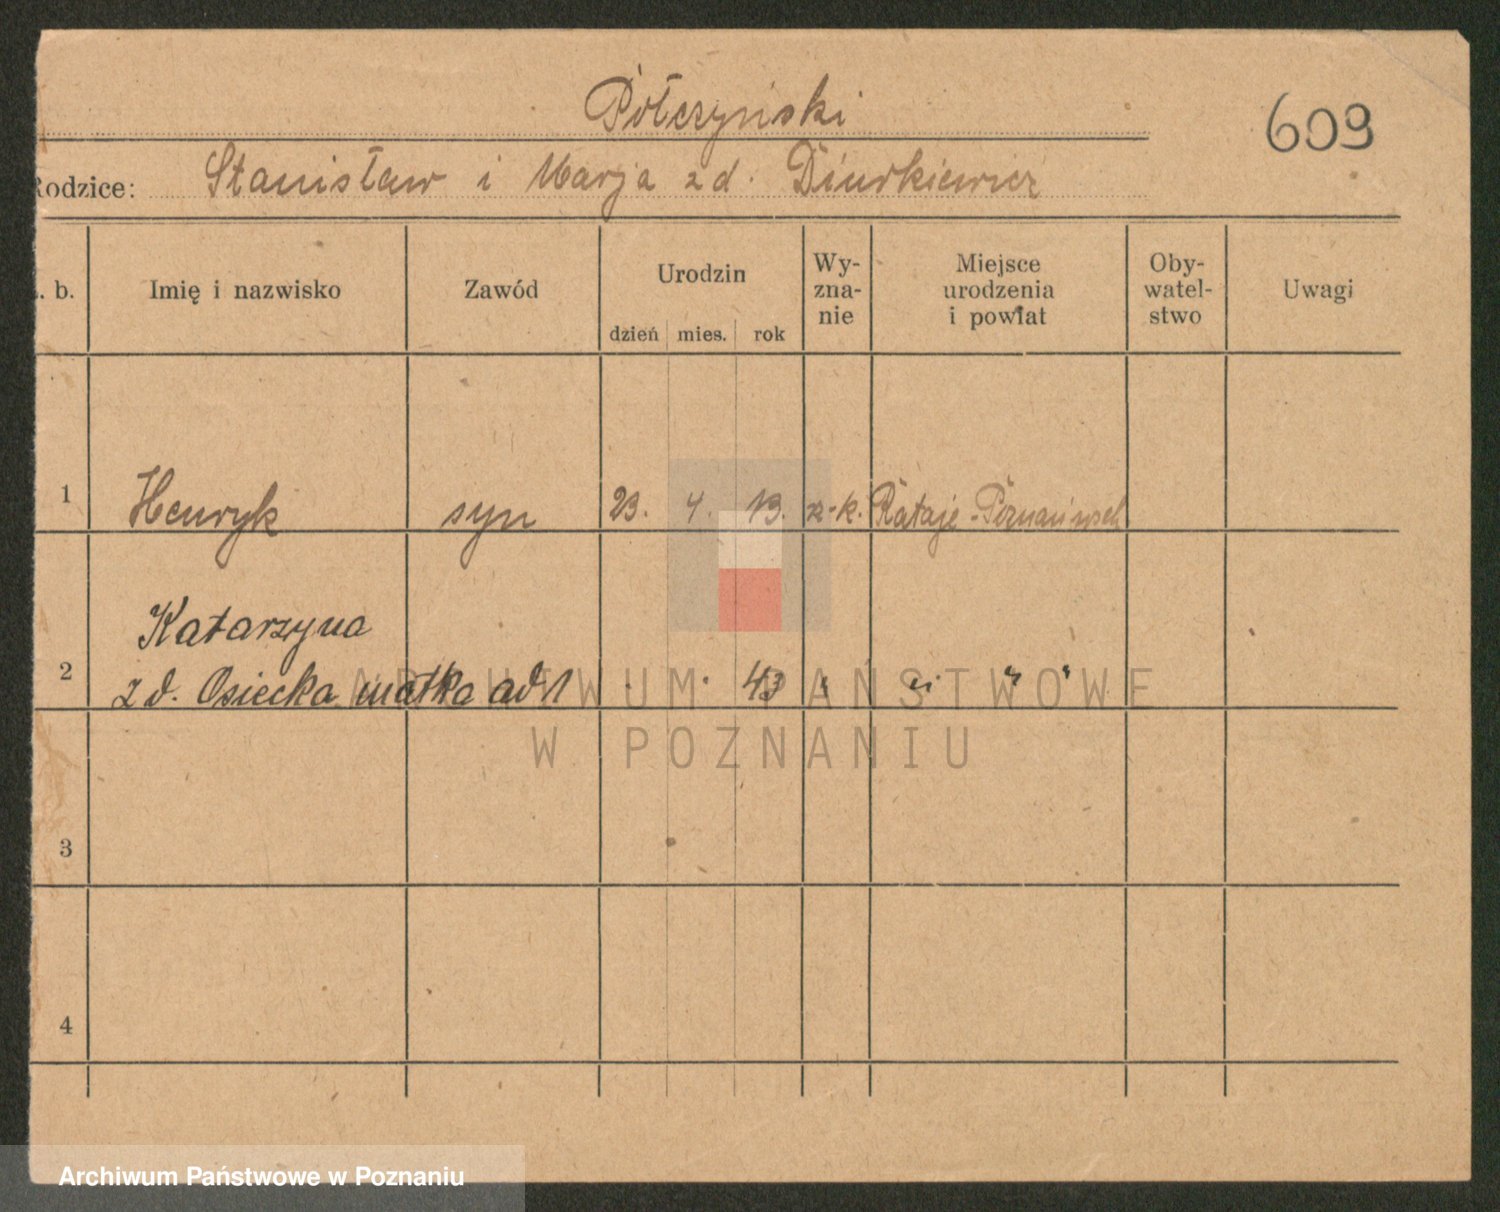 Półczyński
609
Rodzice: Stanisław i Marja zd.
. b. Imię i nazwisko Zawód Urodzin dzień mies. rok Wy-zna-nie Miejsce urodzenia i powiat Oby-watel-stwo Uwagi
1 Henryk syn 23. 4. 13. rz-k. Rataje -
2 Katarzyna
zd. Osiecka matka ad 1 43 " " " "
3
4
ARCHIWUM PAŃSTWOWE
W POZNANIU
Archiwum Państwowe w Poznaniu